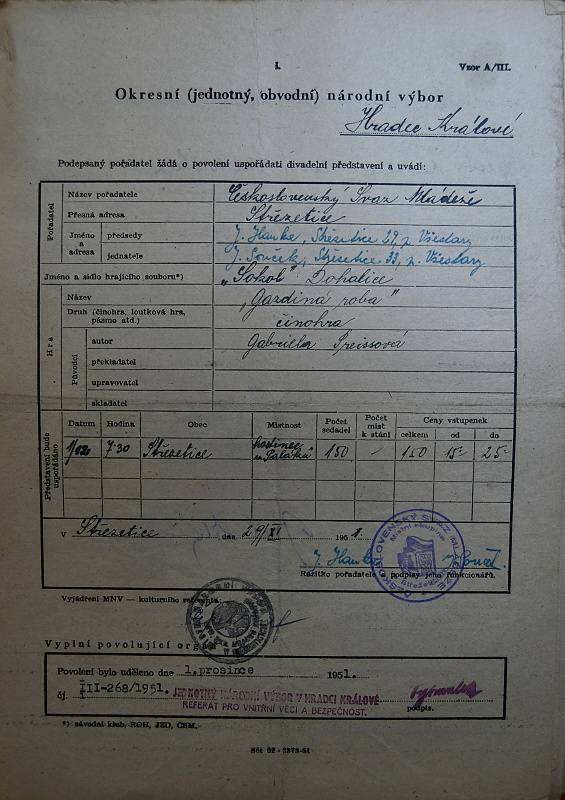 I.
Vzor A/III.
Okresní (jednotný, obvodní) národní výbor
Hradec Králové
Podepsaný pořadatel žádá o povolení uspořádati divadelní představení a uvádí:
Pořadatel
Název pořadatele Československý Svaz Mládeže
Přesná adresa Střezetice
Jméno a adresa
předsedy J. Hanke, Střezetice 29, p. Všestary
jednatele J. Souček, Střezetice 33, p. Všestary
Jméno a sídlo hrajícího souboru*) „Sokol" Dohalice
Hra
Název „Gazdina roba"
Druh (činohra, loutková hra, pásmo atd.) činohra
Původci
autor Gabriela Preissová
překladatel
upravovatel
skladatel
Představení bude uspořádáno
Datum Hodina Obec Místnost Počet sedadel Počet míst k stání Ceny vstupenek
celkem od do
1/12 7·30 Střezetice hostinec u 150 – 150 15- 25-
V Střezetice dne 29/XI 1951.
J. Hanke
Razítko pořadatele a podpisy jeho funkcionářů.
ČESKOSLOVENSKÝ SVAZ MLÁDEŽE
Místní skupina
Vyjádření MNV — kulturního referenta:
Vyplní povolující orgán
Povolení bylo uděleno dne 1.prosince 1951.
čj. III-268/1951. JEDNOTNÝ NÁRODNÍ VÝBOR V HRADCI KRÁLOVÉ
REFERÁT PRO VNITŘNÍ VĚCI A BEZPEČNOST.
podpis.
*) závodní klub, ROH, JZD, ČSM.
Mět 02 - 2378-51